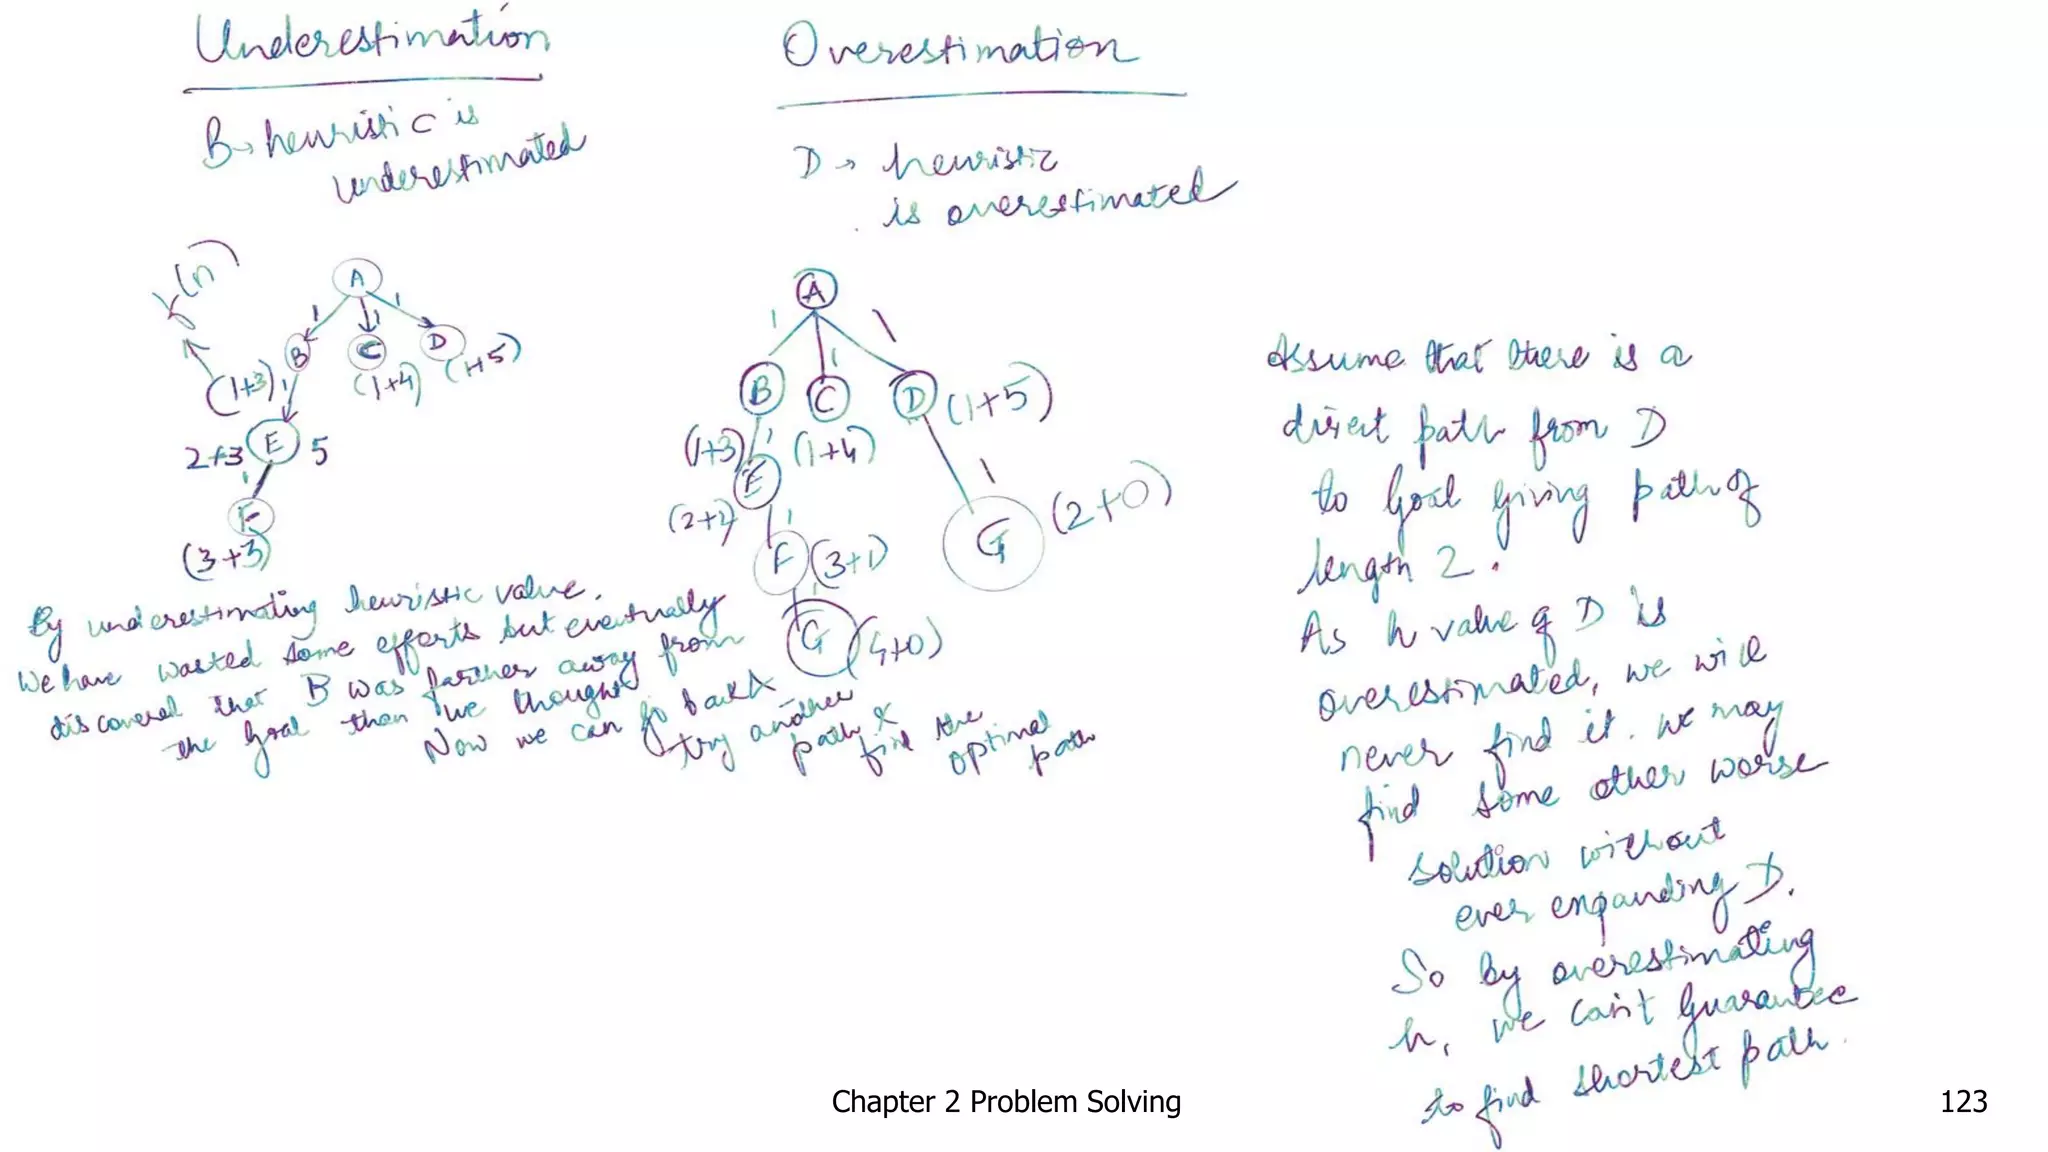 Underestimation
B → heuristic is
underestimated
h(n)
A
1 1 1
B C D
(1+3) (1+4) (1+5)
1
2+3 E 5
1
F
(3+3)
By underestimating heuristic value,
We have wasted some efforts but eventually
discovered that B was farther away from
the goal than we thought
Now we can go back &
try another
path & find the
optimal path
Overestimation
D → heuristic
is overestimated
A
1 1 1
B C D (1+5)
(1+3) 1 (1+4)
E 1
(2+2) G (2+0)
1
F (3+1)
1
G (4+0)
Assume that there is a
direct path from D
to goal giving path of
length 2.
As h value of D is
overestimated, we will
never find it. We may
find some other worse
solution without
ever expanding D.
So by overestimating
h, we can't guarantee
to find shortest path.
Chapter 2 Problem Solving
123